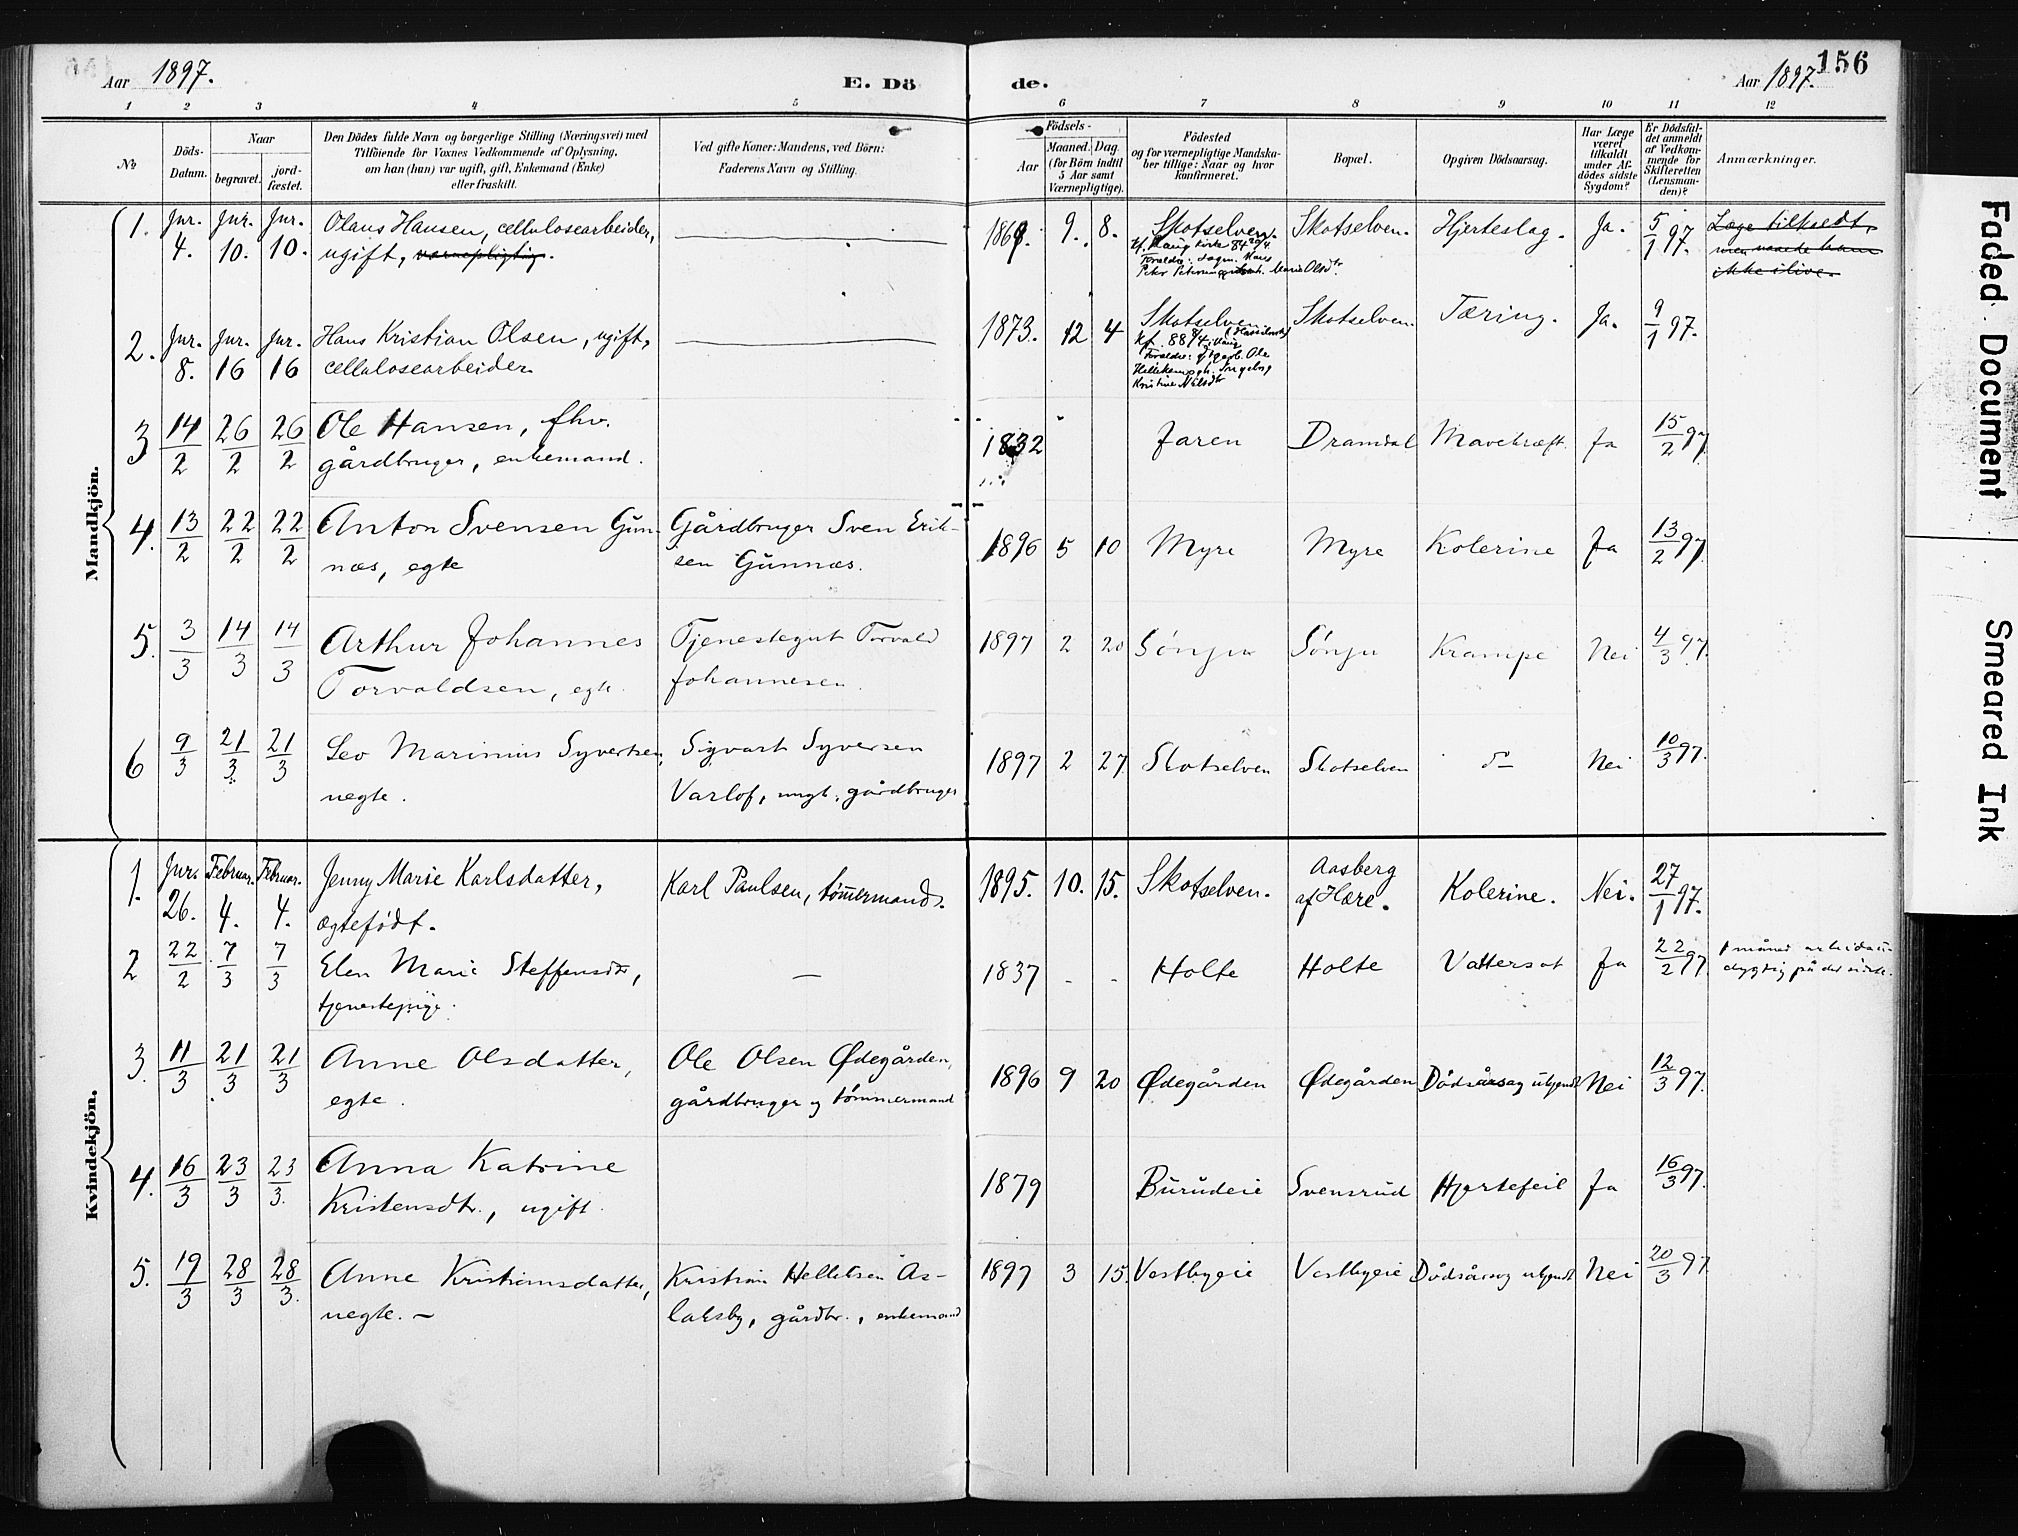 Aar 1897.
E. Dö
de.
Aar 1897.
156
1 2 3 4 5 6 7 8 9 10 11 12
No
Döds-
Datum.
Naar
begravet.
jord-
fæstet.
Den Dödes fulde Navn og borgerlige Stilling (Næringsvei) med
Tilföiende for Voxnes Vedkommende af Oplysning,
om han (hun) var ugift, gift, Enkemand (Enke)
eller fraskilt.
Ved gifte Koner: Mandens, ved Börn:
Faderens Navn og Stilling.
Födsels-
Aar
Maaned. Dag
(for Börn indtil
5 Aar samt
Værnepligtige).
Födested
og for værnepligtige Mandska-
ber tillige: Naar og hvor
konfirmeret.
Bopæl.
Opgiven Dödsaarsag.
Har Læge
været
tilkaldt
under Af-
dödes sidste
Sygdom?
Er Dödsfal-
det anmeldt
af Vedkom-
mende for
Skifteretten
(Lensman-
den)?
Anmærkninger.
Mandkjön.
1. Jnr. 4. Jnr. 10. Jnr. 10. Olaus Hansen, cellulosearbeider,
ugift, værnepligtig.
1869. 9. 8. Skotselven. Skotselven. Hjerteslag. Ja. 5/1 97. Læge tilkaldt,
men naaede ham
ikke ilive.
2. Jnr. 8. Jnr. 16 Jnr. 16 Hans Kristian Olsen, ugift,
cellulosearbeider
1873. 12 4 Skotselven Skotselven. Tæring. Ja. 9/1 97.
Kristine Nilsdtr
3 14/2 26/2 26/2 Ole Hansen, fhv.
gårdbruger, enkemand.
1832 Jaren Dramdal Mavekræft Ja 15/2 97
4. 13/2 22/2 22/2 Anton Svensen Gun-
næs, egte
Gårdbruger Sven Erik-
sen Gunnæs.
1896 5 10 Myre Myre Kolerine Ja 13/2 97.
5. 3/3 14/3 14/3 Arthur Johannes
Torvaldsen, egte.
Tjenestegut Torvald
Johannesen.
1897 2 20 Sønju Sønju Krampe Nei 4/3 97.
6 9/3 21/3 21/3 Leo Marinius Syvertsen,
uegte.
Sigvart Syversen
Varlof, ungk. gårdbruger
1897 2 27 Skotselven Skotselven do Nei 10/3 97.
Kvindekjön.
1. Jnr. 26. Februar. 4. Februar. 4. Jenny Marie Karlsdatter,
ægtefødt.
Karl Paulsen, tømmermand.
1895. 10. 15. Skotselven. Aasberg
af Hære. Kolerine. Nei. 27/1 97.
2 22/2 7/3 7/3 Elen Marie Steffensdtr,
tjenestepige.
—
1837 - - Holte Holte Vattersot Ja 22/2 97 1 måned arbidsu-
dygtig på det sidste.
3. 11/3 21/3 21/3 Anne Olsdatter,
egte.
Ole Olsen Ødegården,
gårdbruger og tømmermand
1896 9 20 Ødegården Ødegården Dødsårsag ukjendt Nei 12/3 97.
4. 16/3 23/3 23/3. Anna Katrine
Kristensdtr., ugift.
1879 Burudeie Svensrud Hjertefeil Ja 16/3 97.
5. 19/3 28/3 28/3. Anne Kristiansdatter,
uegte. —
Kristian Helleksen As-
laksby, gårdbr., enkemand
1897 3 15. Vestbyeie Vestbyeie Dødsårsag ukjendt Nei 20/3 97.
Faded Document
Smeared Ink